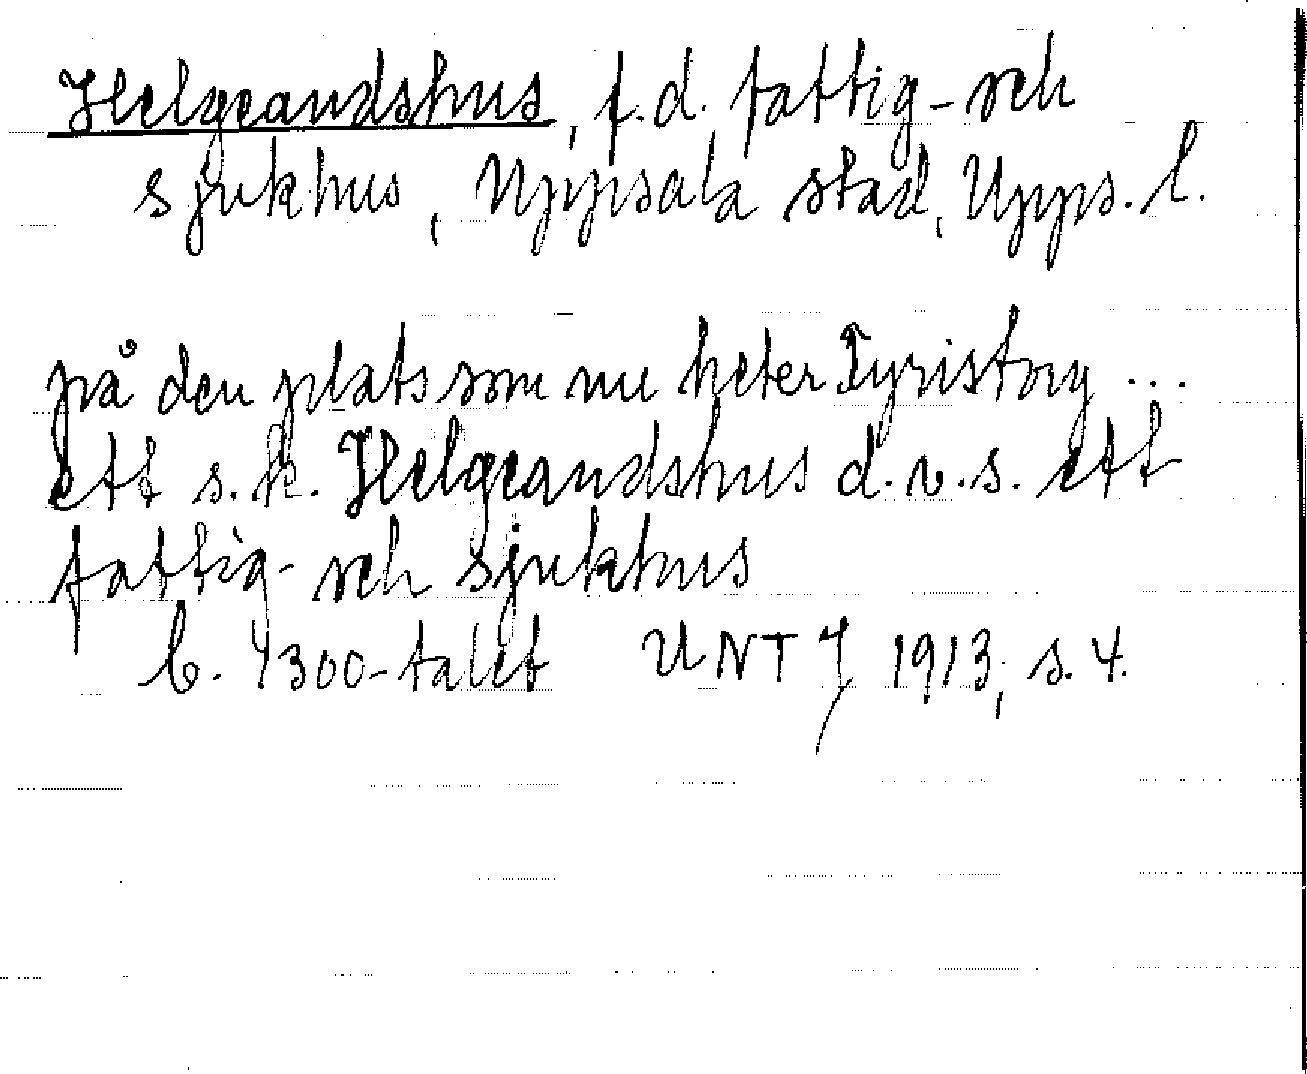 Helgeandshus, f.d. fattig- och
sjukhus, Uppsala stad, Upps. l.
på den plats som nu heter Fyristorg ...
ett s.k. Helgeandshus d.v.s. ett
fattig- och sjukhus
b. 1300-talet UNT 7/ 1913, s. 4.